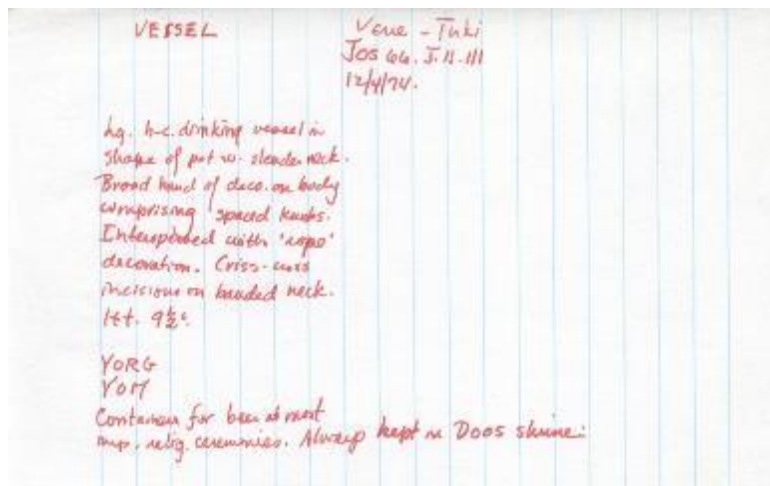 VESSEL
Vere - Tuki
Jos 66. J. 11. 111
12/4/74.
hg. h-c. drinking vessel in
shape of pot w. slender neck.
Broad band of deco. on body
comprising spaced knobs.
Interspersed with 'rope'
decoration. Criss-cross
incisions on banded neck.
Ht. 9½".
YORG
YOM
Container for beer at most
imp. relig. ceremonies. Always kept in Doos shrine.